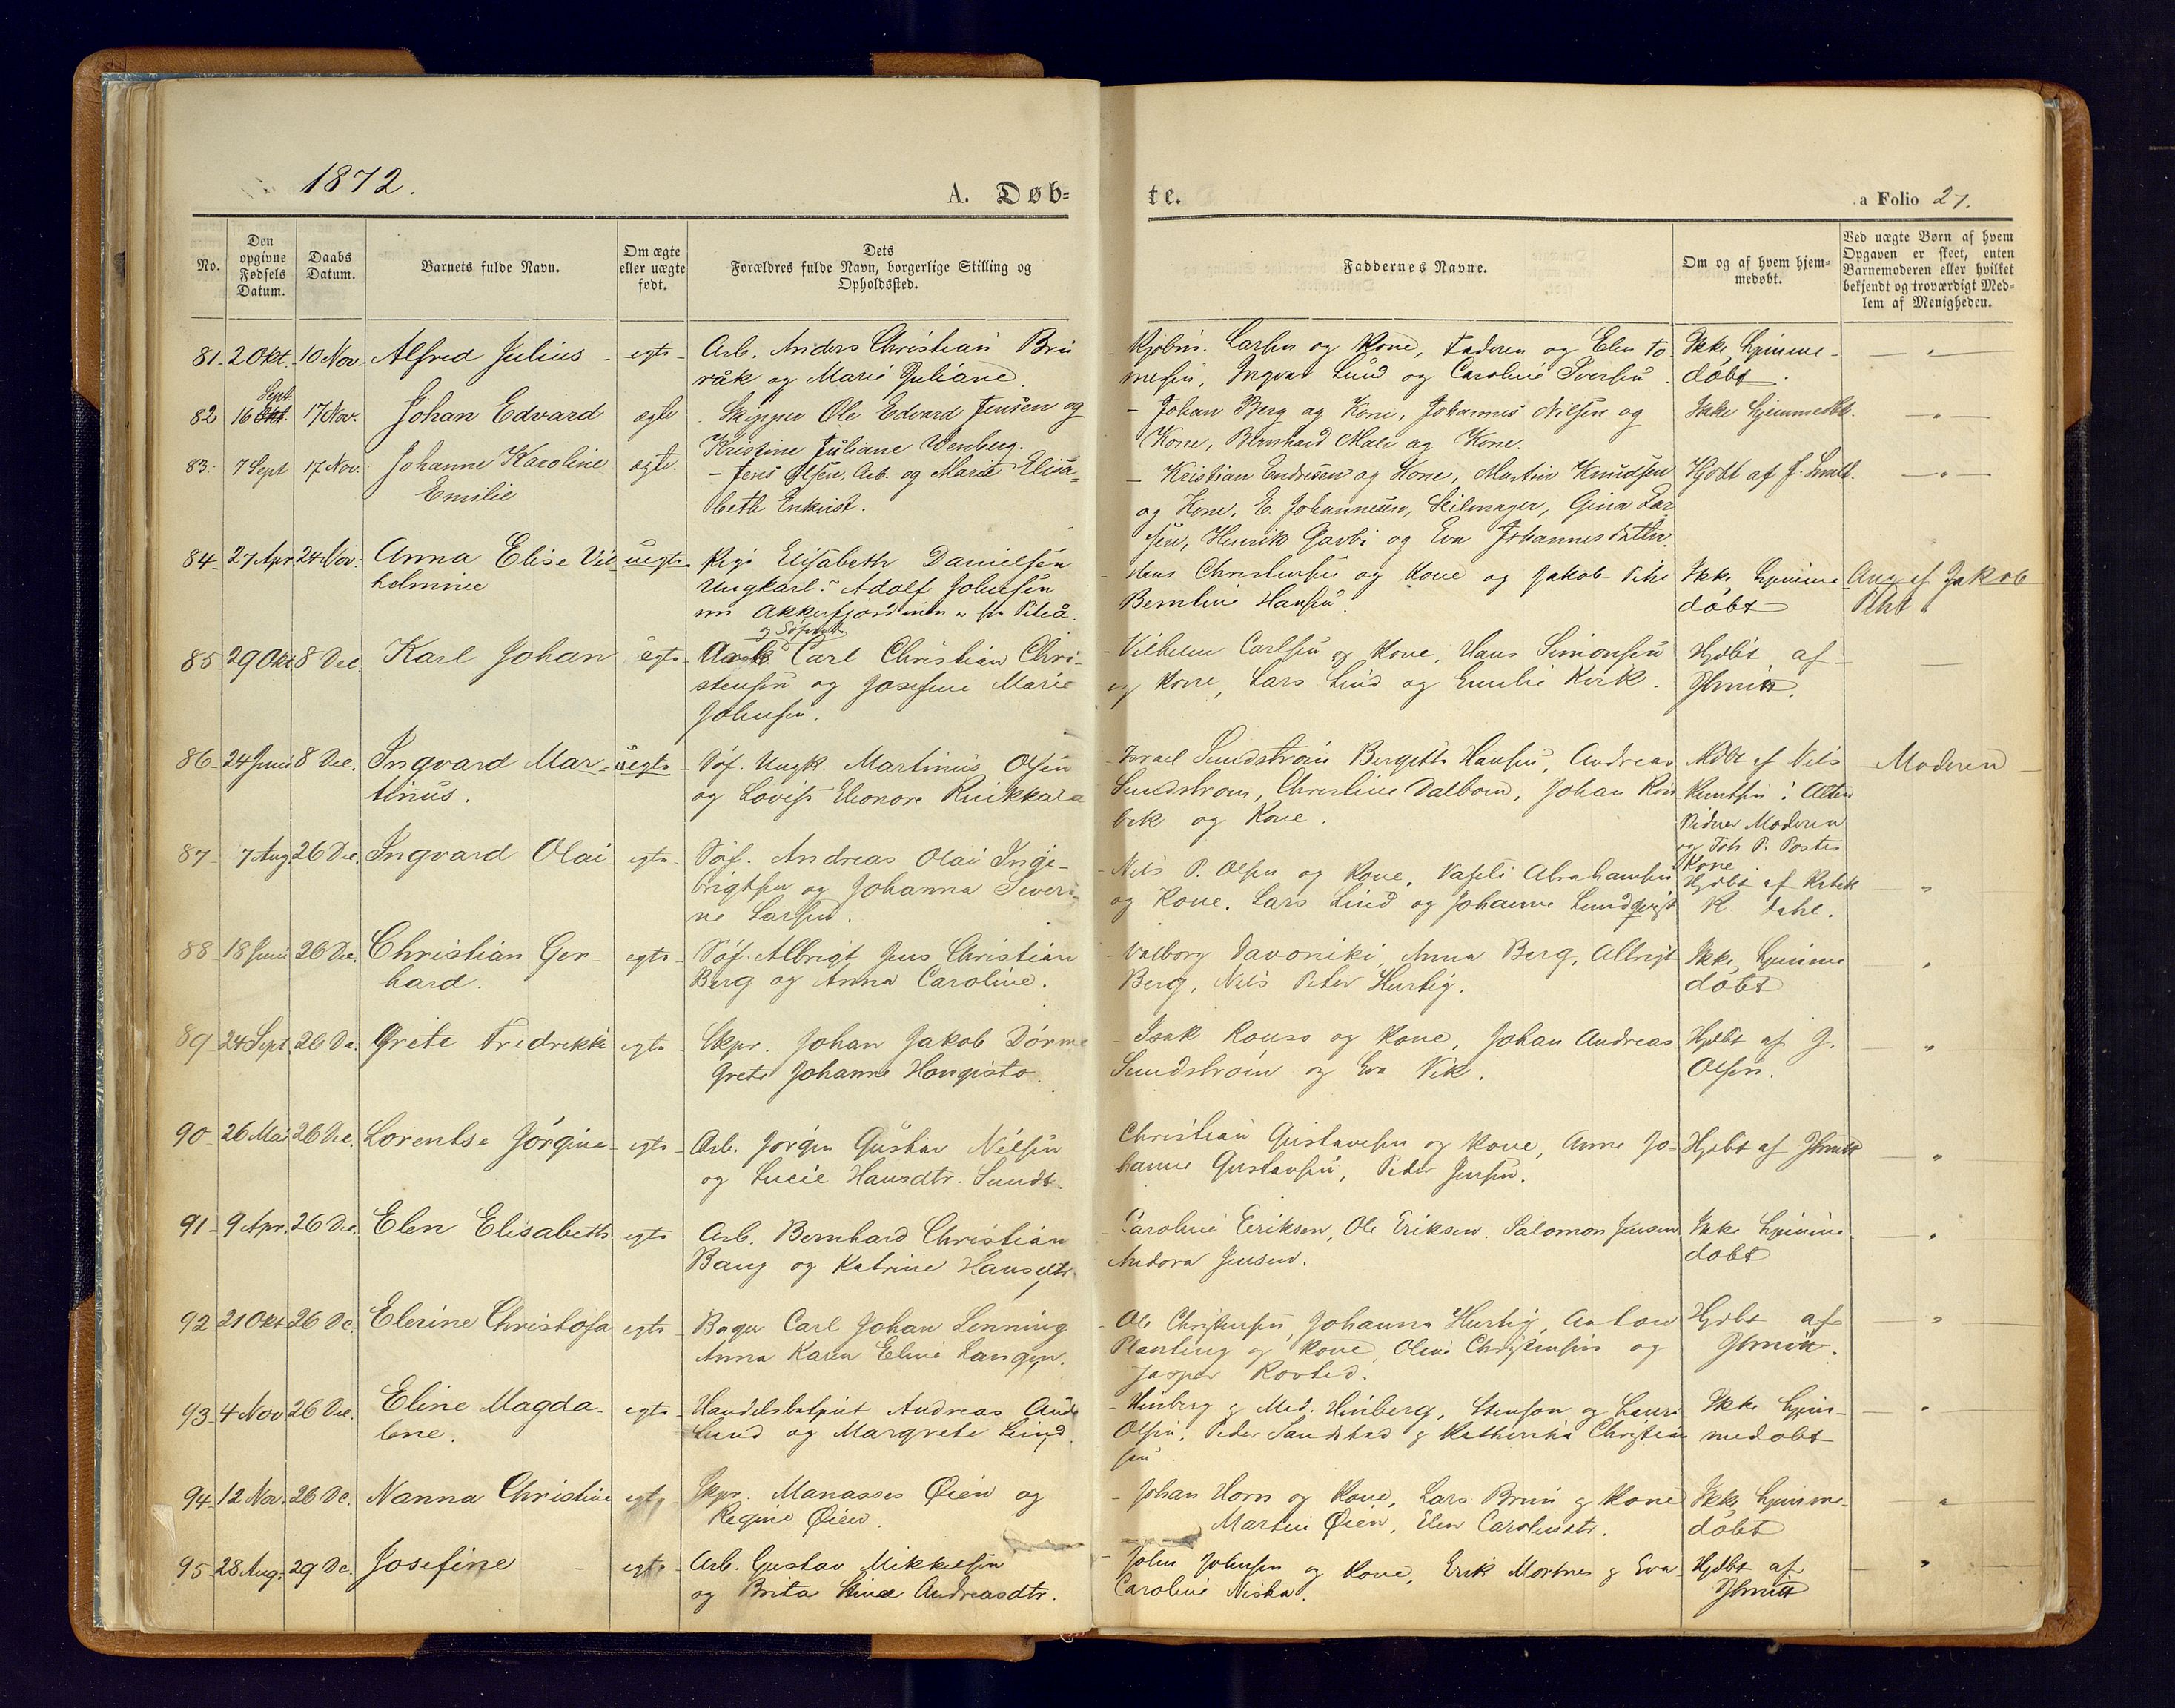 1872.
A. Døb=
te.
a Folio 27.
No.
Den opgivne Fødsels Datum.
Daabs Datum.
Barnets fulde Navn.
Om ægte eller uægte født.
Dets Forældres fulde Navn, borgerlige Stilling og Opholdssted.
Faddernes Navne.
Om og af hvem hjem=medøbt.
Ved uægte Børn af hvem
Opgaven er skeet, enten
Barnemoderen eller hvilket
bekjendt og troværdigt Med=
lem af Menigheden.
81 2 Okt. 10 Nov. Alfred Julius egte Arb. Anders Christian Bru
råk og Marie Juliane.
Kjøbm. Carlsen og Kone, Faderen og Elen To
mesen, Ingvar Lund og Caroline Iversen. Ikke hjemme-
døbt.
82 16 Sept. 17 Nov. Johan Edvard egte Skipper Ole Edvard Jensen og
Kristine Juliane Wenberg.
Johan Berg og Kone, Johannes Nilsen og
Kone, Bernhard og Kone. Ikke hjemmedbt.
83. 7 Sept 17 Nov. Johanne Karoline
Emilie egte. Jens Olsen, Arb. og Marie Elisa-
beth Enkvist.
Kristian Endresen og Kone, Martin Knudsen
og Kone, E. Johannesen, Seilmager, Gina Lar
sen, Henrik Gavbi og Eva Johannesdatter. Hjdbt af J. Smitt.
84 27 Apr 24 Nov. Anna Elise Vil-
helmine uegte Pige Elisabeth Danielsen
Ungkarl Adolf Johnsen
Akkerfjord fra Piteå.
Hans Christensen og Kone og Jakob Pehr
Berntine Hansen. Ikke hjemme
døbt Ang. af Jakob
Pehr.
85 29 Okt 8 Dec. Karl Johan egte Carl Christian Chri-
stensen og Josefine Marie
Johnsen.
Vilhelm Carlsen og Kone, Hans Simonsen
og Kone, Lars Lind og Emilie Kirk. Hjdbt af
JSmitt.
86 24 Juni 8 Dec. Ingvard Mar-
tinus. uegte Søf. Ungk. Martinus Olsen
og Lovise Eleonore Kuikkala
Israel Sundstrøm Bergette Hansen, Andreas
Sundstrøm, Christine Dalbom, Johan Rin
bek og Kone. Hdbt af Nils
Kuntsen i Alten
Moderen
og Joh. P. Postis
Kone
Moderen
87 7 Aug 26 Dec. Ingvard Olai egte Søf. Andreas Olai Inge-
brigtsen og Johanna Severi-
ne Larsen.
Nils P. Olsen og Kone, Vasili Abrahamsen
og Kone. Lars Lind og Johanne Lundqvist Hjdbt af
K Dahl.
88 18 Juni 26 Dec. Christian Ger-
hard. egte Søf. Albrigt Jens Christian
Berg og Anna Caroline.
Valborg Davoniki Anna Berg, Albrigt
Berg, Nils Peter Hurtig. Ikke hjemme
døbt
89 24 Sept. 26 De. Grete Fredrikke egte Skpr. Johan Jakob Dørme
Grete Johanne Hongisto.
Isak Rouso og Kone, Johan Andreas
Sundstrøm og Eva Vik. Hjdbt af J.
Olsen.
90 26 Mai 26 Dec. Lorentse Jørgine egte Arb. Jørgen Gustav Nilsen
og Lucie Hansdtr. Sundt.
Christian Gustavesen og Kone, Anne Jo-
hanne Gustavsen, Peder Jensen. Hjdbt af JSmitt
91 9 Apr. 26 De. Elen Elisabeth egte Arb. Bernhard Christian
Bang og Katrine Hansdtr.
Caroline Eeriksen, Ole Eriksen. Salomon Jensen
Andora Jensen. Ikke hjemme-
døbt
92 21 Okt 26 De. Elerine Christofa egte Bager Carl Johan Lenning
Anna Karen Eline Langgen.
Ole Christensen, Johanna Hurtig, Anton
Planting og Kone, Oline Christensen og
Jasper Rosted. Hjdbt af
JSmitt.
93 4 Nov 26 Dec. Eline Magda-
lene. egte Andreas
Lund og Margrete Lind.
Hinberg & Mad. Hinberg, Stenson og Lauri
Olsen. Peder Sandstad & Katherika Christian
sen. Ikke hjem-
medøbt
94 12 Nov. 26 De. Nanna Christine egte Skpr. Manasses Øien og
Regine Øien.
Johan Horn og Kone, Lars Brun & Kone
Martin Øien, Elen Carolusdtr. Ikke hjemme-
døbt
95 28 Aug. 29 De. Josefine egte Arb. Gustav Mikkelsen
og Brita Lina Andreasdtr.
John Johnsen og Kone, Erik Mortnes & Eva
Caroline Niska. Hjdbt af
JSmitt